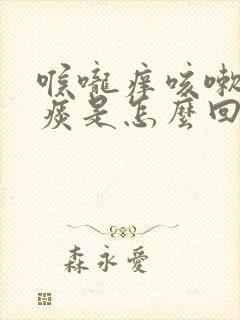 喉嚨痒咳嗽
痰是怎麼回
森永愛